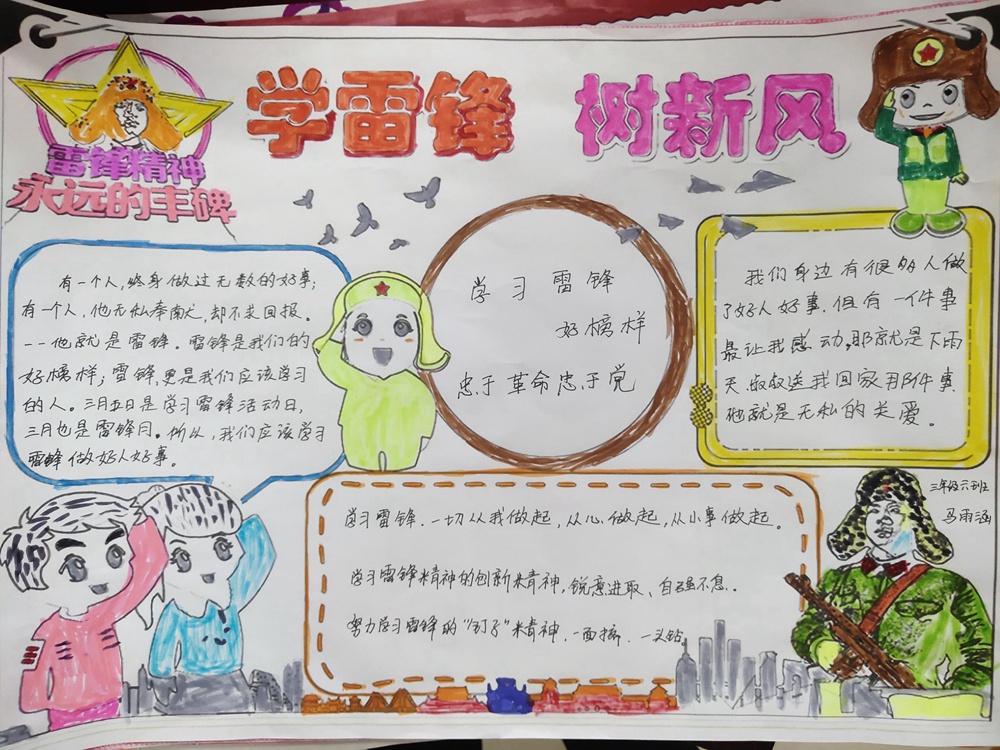 学雷锋 树新风
雷锋精神
永远的丰碑
有一个人，终身做过无数的好事；
有一个人，他无私奉献，却不求回报。
--他就是雷锋。雷锋是我们的
好榜样；雷锋，更是我们应该学习
的人。三月五日是学习雷锋活动日，
三月也是雷锋月。所以，我们应该学习
雷锋做好人好事。
学习雷锋
好榜样
忠于革命忠于党
我们身边有很多人做
了好人好事，但有一件事
最让我感动，那就是下雨
天，叔叔送我回家那件事
他就是无私的关爱。
三年级六班
马雨涵
学习雷锋，一切从我做起，从心做起，从小事做起。
学习雷锋精神的创新精神，锐意进取、自强不息..
努力学习雷锋的“钉子”精神，一面挤、一头钻